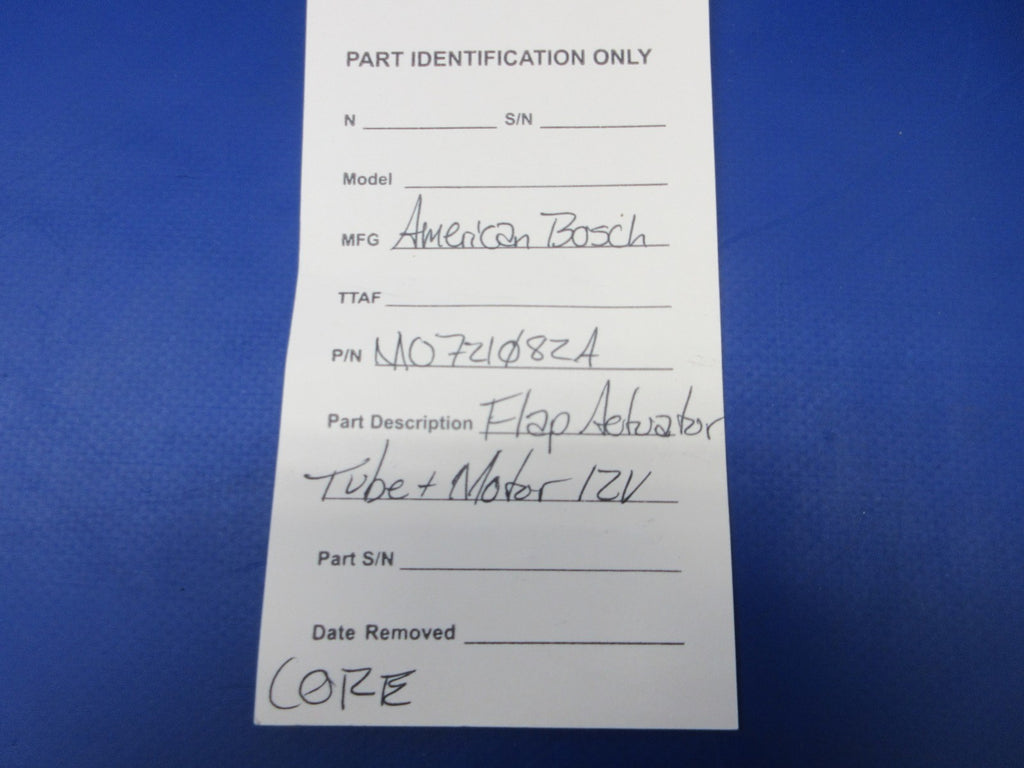 PART IDENTIFICATION ONLY
N S/N
Model
MFG American Bosch
TTAF
P/N MO721082A
Part Description Flap Actuator
Tube + Motor 12V
Part S/N
Date Removed
CORE